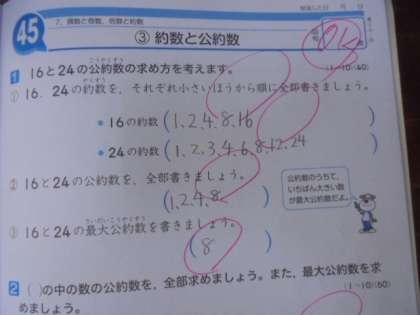 7. 偶数と奇数、倍数と約数
45
③ 約数と公約数
月 日
1 16と24の公約数の求め方を考えます。
(1~10)(40)
① 16、24の約数を、それぞれ小さいほうから順に全部書きましょう。
• 16の約数 (1,2,4,8,16)
• 24の約数 (1,2,3,4,6,8,12,24)
② 16と24の公約数を、全部書きましょう。
(1,2,4,8)
公約数のうちで、
いちばん大きい数
が最大公約数だよ。
③ 16と24の最大公約数を書きましょう。
(8)
2 ( )の中の数の公約数を、全部求めましょう。また、最大公約数を求
めましょう。
(1~10)(60)